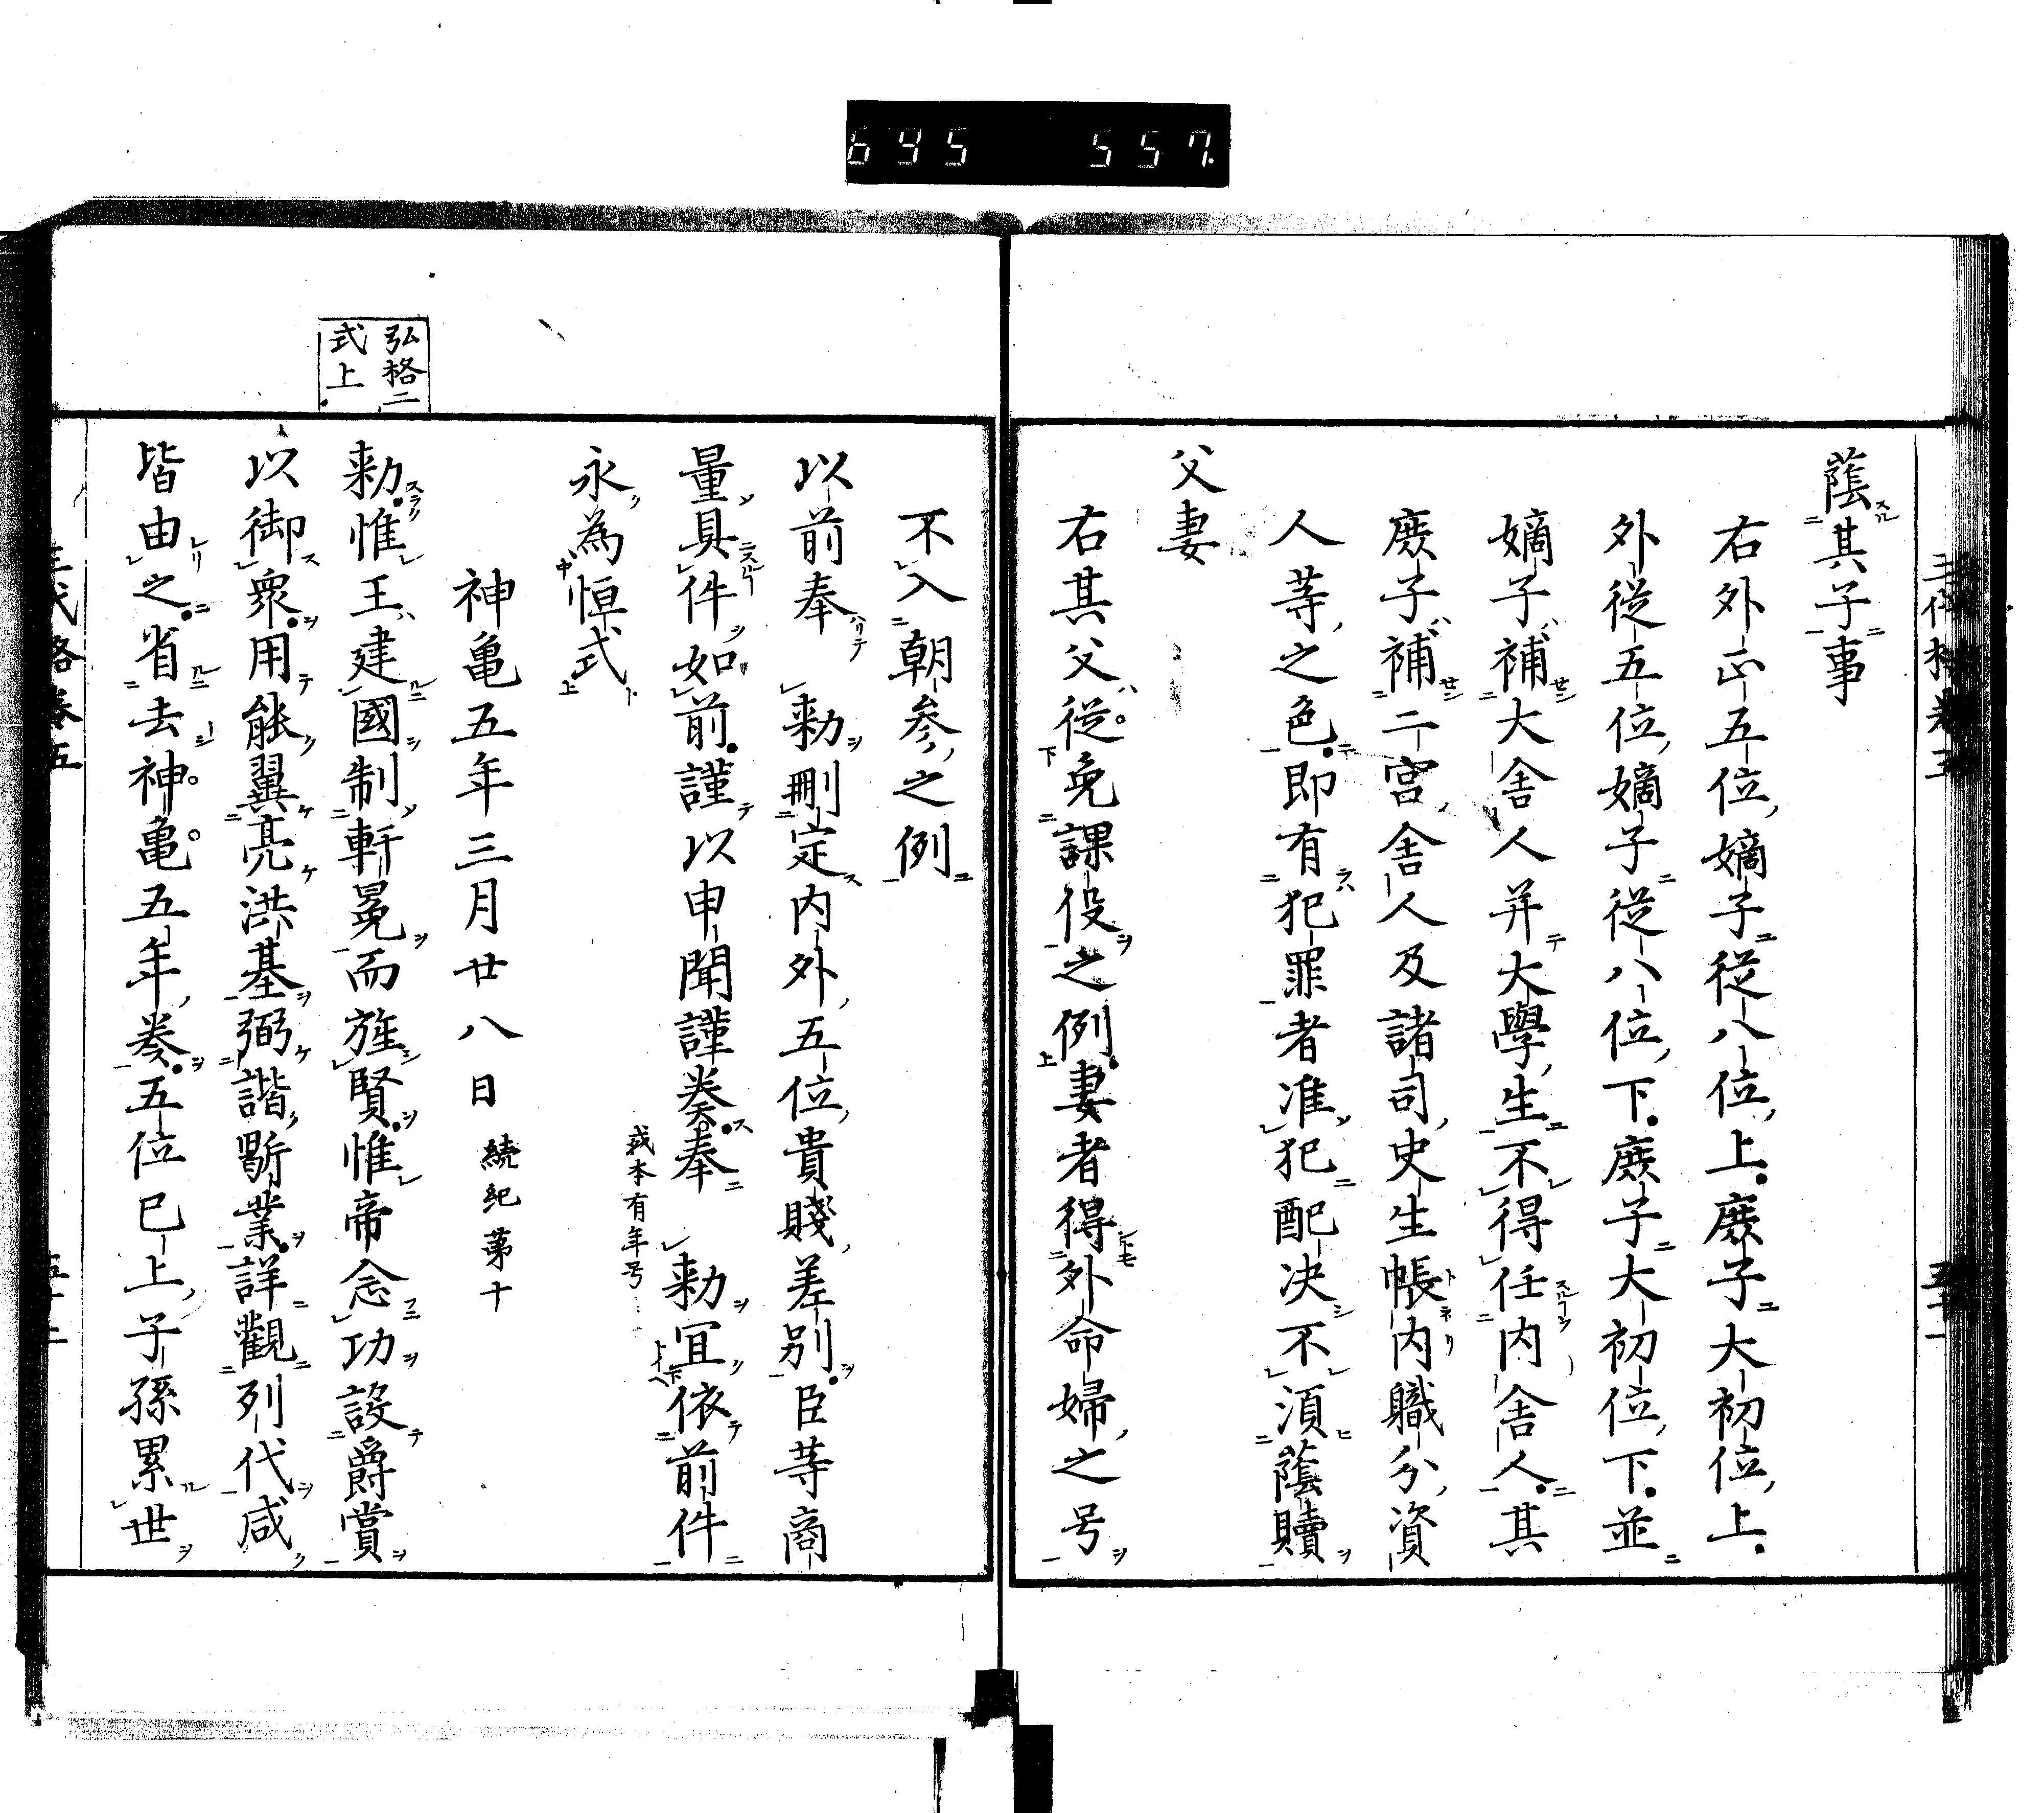 695 557
蔭其子事
右外正五位嫡子從八位上庶子大初位上
外從五位嫡子從八位下庶子大初位下並
嫡子補大舎人并大學生不得任内舎人其
庶子補二宮舎人及諸司史生帳内職分資
人等之色即有犯罪者准犯配决不須蔭贖
父妻
右其父從免課役之例妻者得外命婦之号
不入朝参之例
以前奉 勅刪定内外五位貴賤差別臣等商
量具件如前謹以申聞謹奏奉 勅宜依前件
或本有年号
永為恒式
神亀五年三月廿八日 続紀第十
弘格二
式上
勅惟王建國制軒冕而旌賢惟帝念功設爵賞
以御衆用能翼亮洪基弼諧斯業詳觀列代咸
皆由之省去神亀五年奏五位已上子孫累世